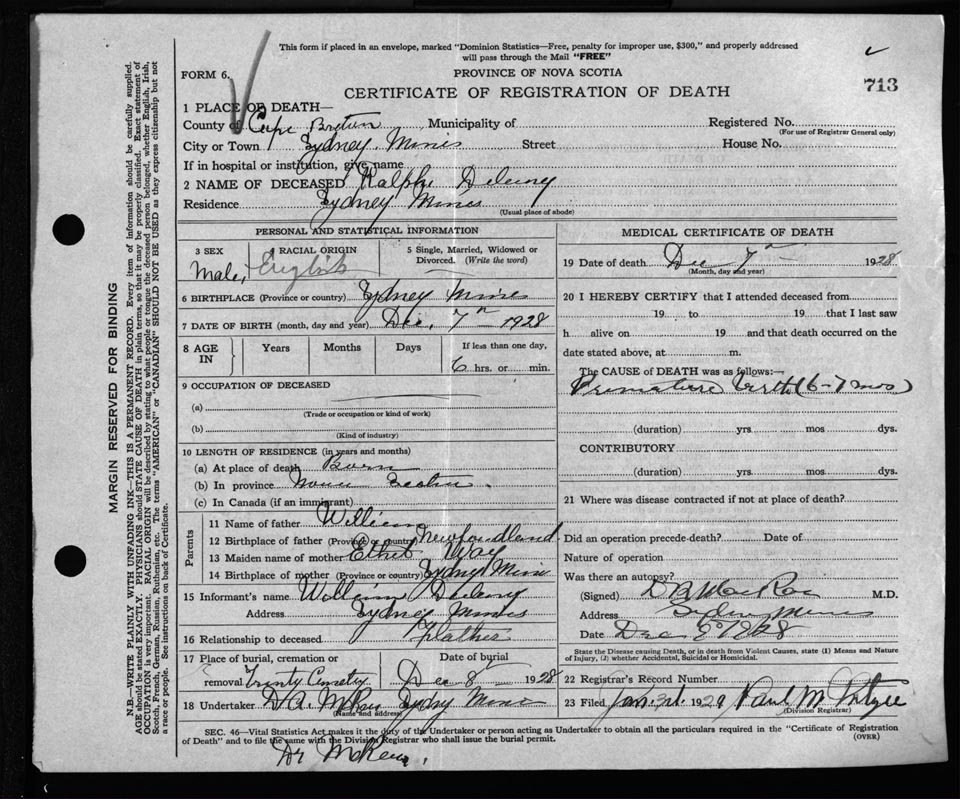 This form if placed in an envelope, marked "Dominion Statistics—Free, penalty for improper use, $300," and properly addressed
will pass through the Mail "FREE"
FORM 6.
PROVINCE OF NOVA SCOTIA
713
CERTIFICATE OF REGISTRATION OF DEATH
1 PLACE OF DEATH—
County of Cape Breton Municipality of Registered No.
(For use of Registrar General only)
City or Town Sydney Mines Street House No.
If in hospital or institution, give name
2 NAME OF DECEASED Ralph Delaney
Residence Sydney Mines
(Usual place of abode)
PERSONAL AND STATISTICAL INFORMATION
3 SEX 4 RACIAL ORIGIN 5 Single, Married, Widowed or
Divorced. (Write the word)
Male, English
6 BIRTHPLACE (Province or country) Sydney Mines
7 DATE OF BIRTH (month, day and year) Dec. 7th 1928
8 AGE IN Years Months Days If less than one day,
6 hrs. or min.
9 OCCUPATION OF DECEASED
(a)
(Trade or occupation or kind of work)
(b)
(Kind of industry)
10 LENGTH OF RESIDENCE (in years and months)
(a) At place of death Born
(b) In province Nova Scotia.
(c) In Canada (if an immigrant)
Parents
11 Name of father William
12 Birthplace of father (Province or country) Newfoundland
13 Maiden name of mother Ethel Way
14 Birthplace of mother (Province or country) Sydney Mines
15 Informant's name William Delaney
Address Sydney Mines
16 Relationship to deceased Father
17 Place of burial, cremation or Date of burial
removal Trinity Cemetry Dec 8 1928
18 Undertaker Sydney Mines
(Name and address)
MEDICAL CERTIFICATE OF DEATH
19 Date of death Dec 7th 1928
(Month, day and year)
20 I HEREBY CERTIFY that I attended deceased from
19 to 19 that I last saw
h alive on 19 and that death occurred on the
date stated above, at m.
The CAUSE of DEATH was as follows:—
Premature birth (6-7 mos)
(duration) yrs. mos dys.
CONTRIBUTORY
(duration) yrs. mos. dys.
21 Where was disease contracted if not at place of death?
Did an operation precede death? Date of
Nature of operation
Was there an autopsy?
(Signed) M.D.
Address Sydney Mines
Date Dec 1928
State the Disease causing Death, or in death from Violent Causes, state (1) Means and Nature
of Injury, (2) whether Accidental, Suicidal or Homicidal.
22 Registrar's Record Number
23 Filed Jan. 3rd. 1929
(Division Registrar)
SEC. 46—Vital Statistics Act makes it the duty of the Undertaker or person acting as Undertaker to obtain all the particulars required in the "Certificate of Registration
of Death" and to file the same with the Division Registrar who shall issue the burial permit. (OVER)
MARGIN RESERVED FOR BINDING
N.B.—WRITE PLAINLY WITH UNFADING INK—THIS IS A PERMANENT RECORD. Every item of information should be carefully supplied.
AGE should be stated EXACTLY. PHYSICIANS should STATE CAUSE OF DEATH in plain terms, so that it may be properly classified. Exact statement of
OCCUPATION is very important. RACIAL ORIGIN will be described by stating to what people or tongue the deceased person belonged, whether English, Irish,
Scotch, French, German, Russian, Ruthenian, etc. The terms "AMERICAN" or "CANADIAN" SHOULD NOT BE USED as they express citizenship but not
a race or people. See instructions on back of Certificate.